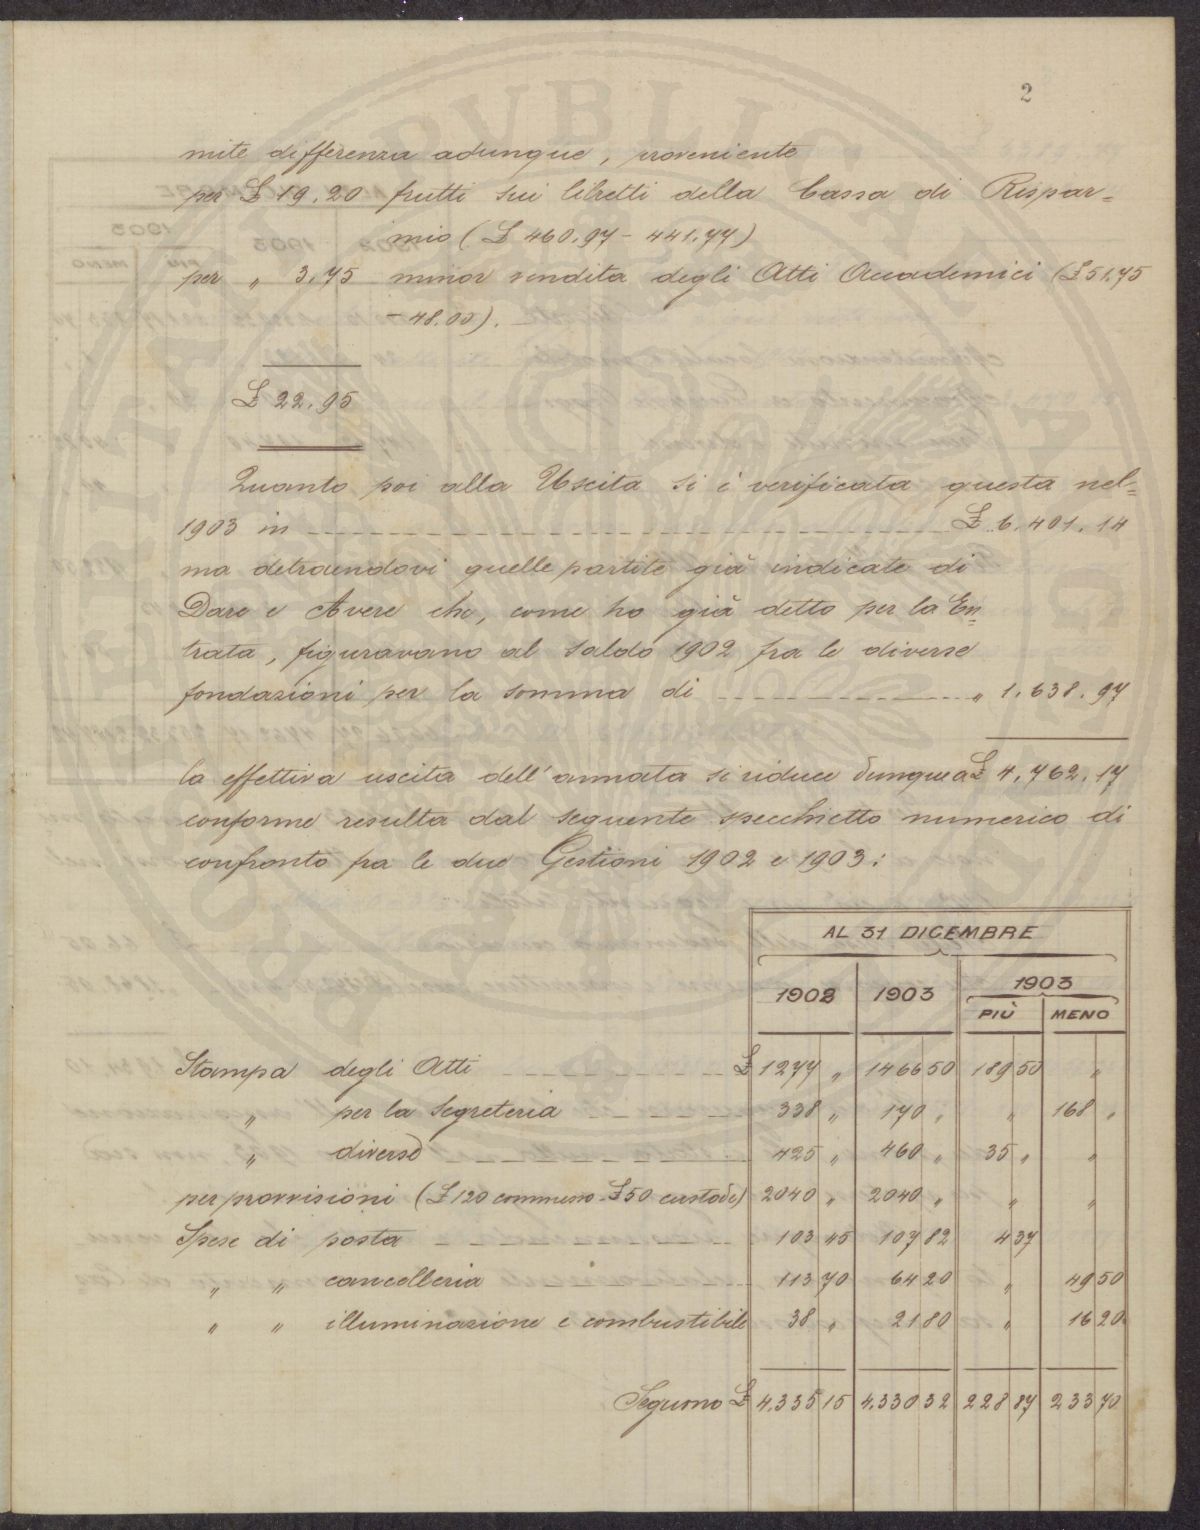 2
mite differenza adunque, proveniente
per £ 19.20 frutti sui libretti della Cassa di Rispar=
mio (£ 460.97 - 441.77)
per " 3.75 minor vendita degli Atti Accademici (£ 51.75
- 48.00).
£ 22.95
Quanto poi alla Uscita si è verificata questa nel=
1903 in £ 6.401.14
ma detraendovi quelle partite già indicate di
Dare e Avere che, come ho già detto per la En=
trata, figuravano al saldo 1902 fra le diverse
fondazioni per la somma di " 1.638.97
la effettiva uscita dell'annata si riduce dunque a £ 4.762.17
conforme resulta dal seguente specchietto numerico di
confronto fra le due Gestioni 1902 e 1903:
AL 31 DICEMBRE
1902 1903 1903
PIÙ MENO
Stampa degli Atti £ 1277 " 1466 50 189 50 "
" per la Segreteria 338 " 170 " " 168 "
" diverse 425 " 460 " 35 " "
per provvisioni (£ 120 commesso - £ 50 custode) 2040 " 2040 " " "
Spese di posta 103 45 107 82 4 37
" " cancelleria 113 70 64 20 " 49 50
" " illuminazione e combustibile 38 " 21 80 " 16 20
Seguono £ 4.335 15 4.330 32 228 87 233 70